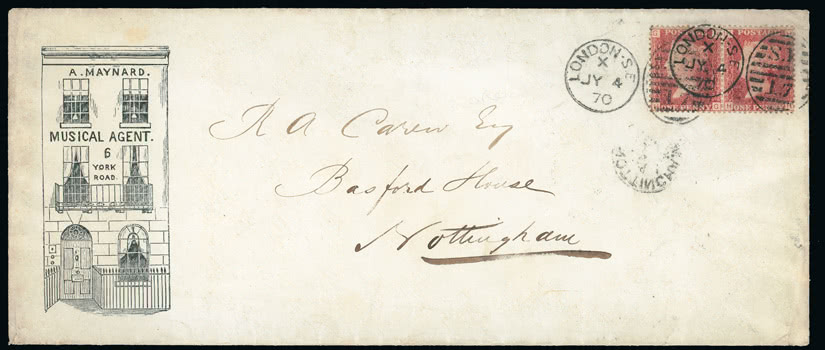 A. MAYNARD.
MUSICAL AGENT.
6
YORK
ROAD.
R A Carew Esq
Basford House
Nottingham
LONDON-S.E
X
JY 4
70
LONDON-S.E
X
JY 4
70
POSTAGE
ONE PENNY
NOTTINGHAM